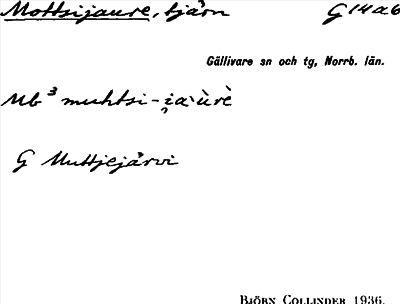 Mottsijaure, tjärn G 14 a 6
Gällivare sn och tg, Norrb. län.
Mb³ muhtsi-i̯a·ùrè
G Muttjejärvi
BJÖRN COLLINDER 1936.